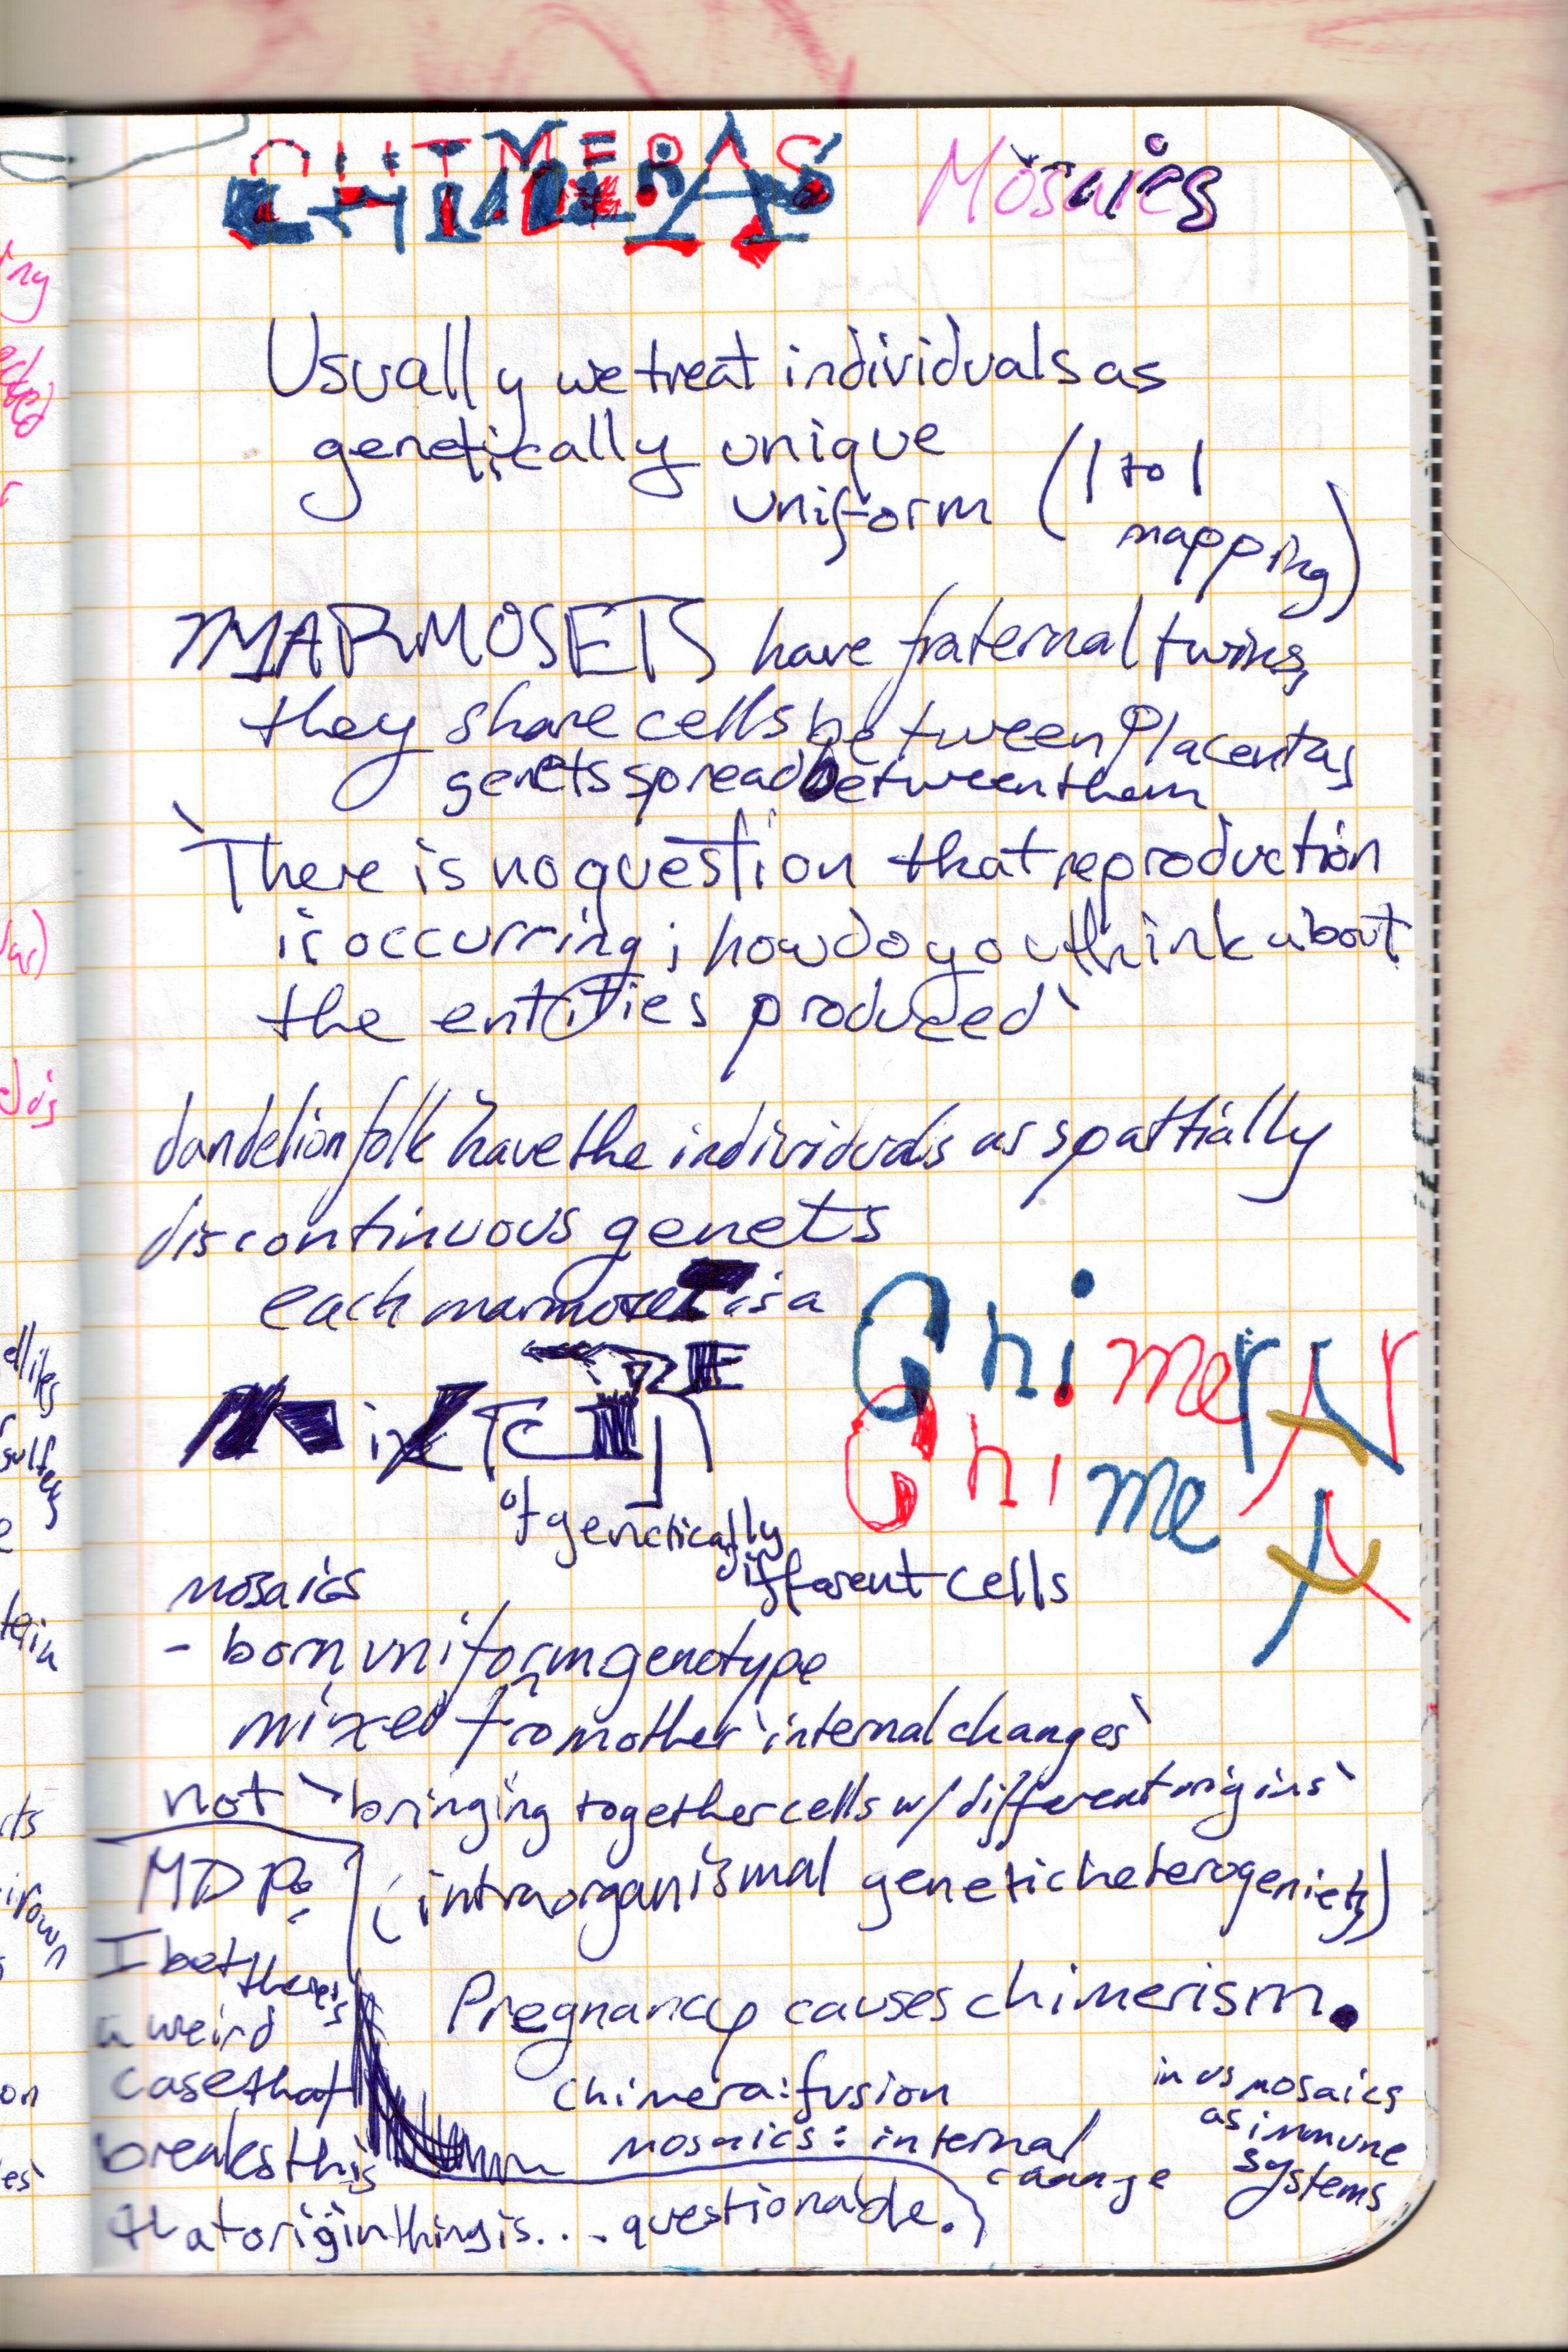 CHIMERAS Mosaics
Usually we treat individuals as
genetically unique
uniform (1 to 1
mapping)
MARMOSETS have fraternal twins,
they share cells between placentas
genets spread between them
`There is no question that reproduction
is occurring; how do you think about
the entities produced`
dandelion folk have the individuals as spattially
discontinuous genets
each marmoset is a
MiXTURE
of genetically
different cells
Chimera
Chimera
mosaics
- born uniform genotype
mixed from other `internal changes`
not `bringing together cells w/ different origins`
(intraorganismal genetic heterogeniety)
MDP:
I bet there's
a weird
case that
breaks this
that origin thing is... questionable.
Pregnancy causes chimerism.
chimera: fusion
mosaics: internal
change
in us mosaics
as immune
systems